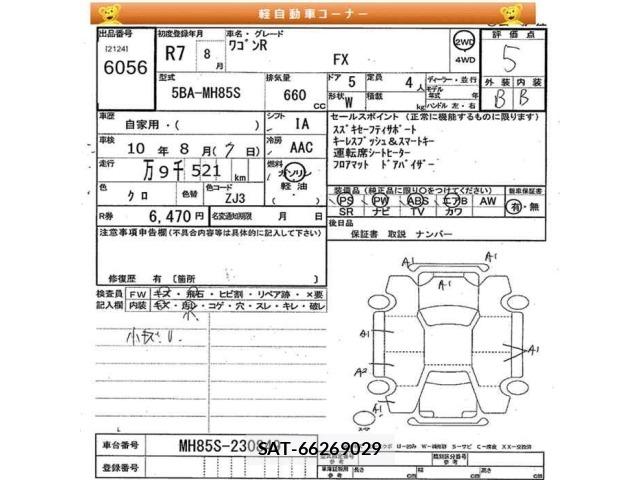 軽自動車コーナー
出品番号 初度登録年月 車名・グレード 評価点
[2124]
6056 R7 8月 ワゴンR FX 2WD 4WD 5
型式 排気量 ドア 5 定員 4人 ディーラー・並行 外装 内装
5BA-MH85S 660 CC 形状 W 積載 kg モデル年式 年 ハンドル 左・右 B B
車歴 シフト セールスポイント (正常に機能するものに限ります)
自家用・( ) IA スズキセーフティサポート
車検 冷房 キーレスプッシュ&スマートキー
10 年 8 月( 7 日) AAC 運転席シートヒーター
走行 燃料 フロアマット ドアバイザー
万 9 千 521 km ガソリン 軽油
色 色コード 装備品 (純正品に限り○をつけてください) 新車保証書
クロ ZJ3 PS PW ABS エアB AW 有・無
R券 6,470 円 名変通知期限 月 日 SR ナビ TV カワ
注意事項申告欄(不具合内容等は具体的に記入して下さい) 後日品
保証書 取説 ナンバー
修復歴 有 [箇所 ]
検査員 FW キズ・飛石・ヒビ割・リペア跡・×要
記入欄 内装 コゲ・穴・スレ・キレ・破レ
小キズU
A1
A1
A1
A1
A2
A1
車台番号 MH85S-230
SAT-66269029
登録番号